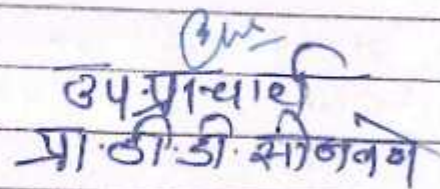 उपप्राचार्य
प्रा.डी.डी.सोनवणे